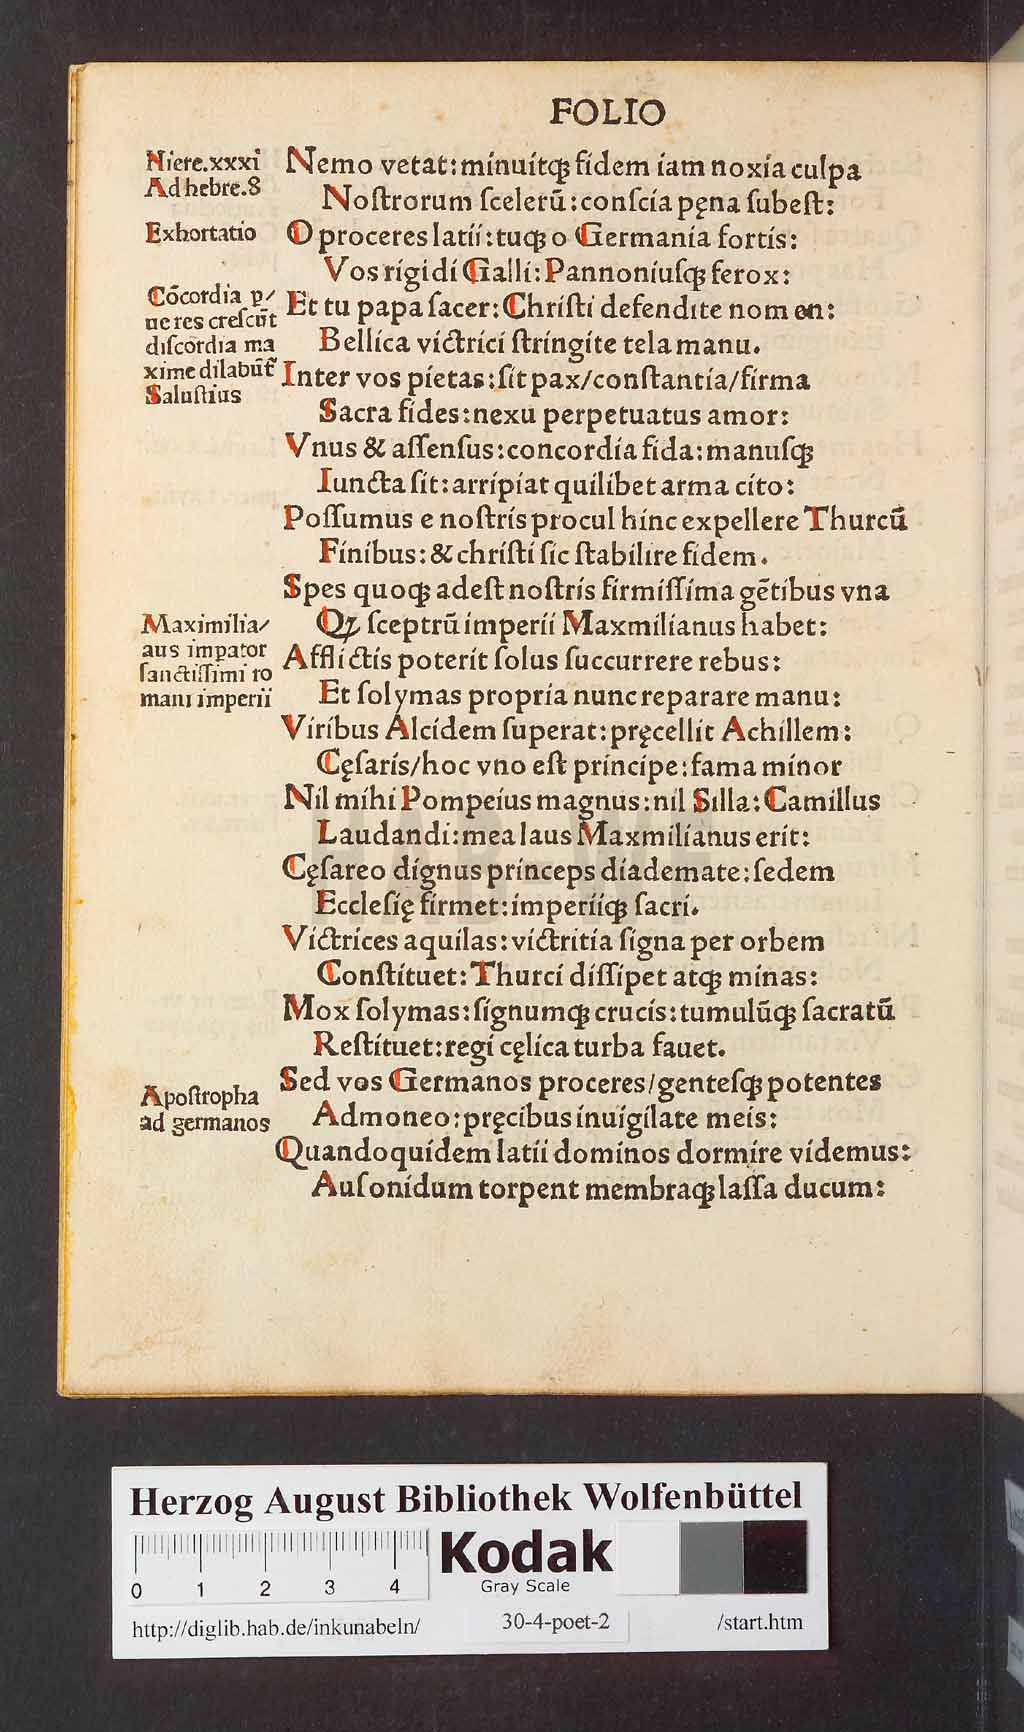 FOLIO
Hiere.xxxi
Ad hebre.8
Exhortatio
Cōcordia p⸗
ue res crescūt
discordia ma
xime dilabūt᷑
Salustius
Maximilia⸗
aus impator
sanctissimi ro
mani imperii
Apostropha
ad germanos
Nemo vetat:minuitqꝫ fidem iam noxia culpa
Noſtrorum ſcelerū:conſcia pęna ſubeſt:
O proceres latii:tuqꝫ o Germania fortis:
Vos rigidi Galli:Pannoniuſqꝫ ferox:
Et tu papa ſacer:Chriſti defendite nomen:
Bellica victrici ſtringite tela manu.
Inter vos pietas:ſit pax/conſtantia/firma
Sacra fides:nexu perpetuatus amor:
Vnus & aſſenſus:concordia fida:manuſqꝫ
Iuncta ſit:arripiat quilibet arma cito:
Poſſumus e noſtris procul hinc expellere Thurcū
Finibus:& chriſti ſic ſtabilire fidem.
Spes quoqꝫ adeſt noſtris firmiſſima gētibus vna
Qꝫ ſceptrū imperii Maxmilianus habet:
Afflictis poterit ſolus ſuccurrere rebus:
Et ſolymas propria nunc reparare manu:
Viribus Alcidem ſuperat:pręcellit Achillem:
Cęſaris/hoc vno eſt principe:fama minor
Nil mihi Pompeius magnus:nil Silla:Camillus
Laudandi:mea laus Maxmilianus erit:
Cęſareo dignus princeps diademate:ſedem
Eccleſię firmet:imperiiqꝫ ſacri.
Victrices aquilas:victritia ſigna per orbem
Conſtituet:Thurci diſſipet atqꝫ minas:
Mox ſolymas:ſignumqꝫ crucis:tumulūqꝫ ſacratū
Reſtituet:regi cęlica turba fauet.
Sed vos Germanos proceres/genteſqꝫ potentes
Admoneo:pręcibus inuigilate meis:
Quandoquidem latii dominos dormire videmus:
Auſonidum torpent membraqꝫ laſſa ducum:
HAB-WF
Herzog August Bibliothek Wolfenbüttel
0 1 2 3 4
Kodak
Gray Scale
http://diglib.hab.de/inkunabeln/ 30-4-poet-2 /start.htm